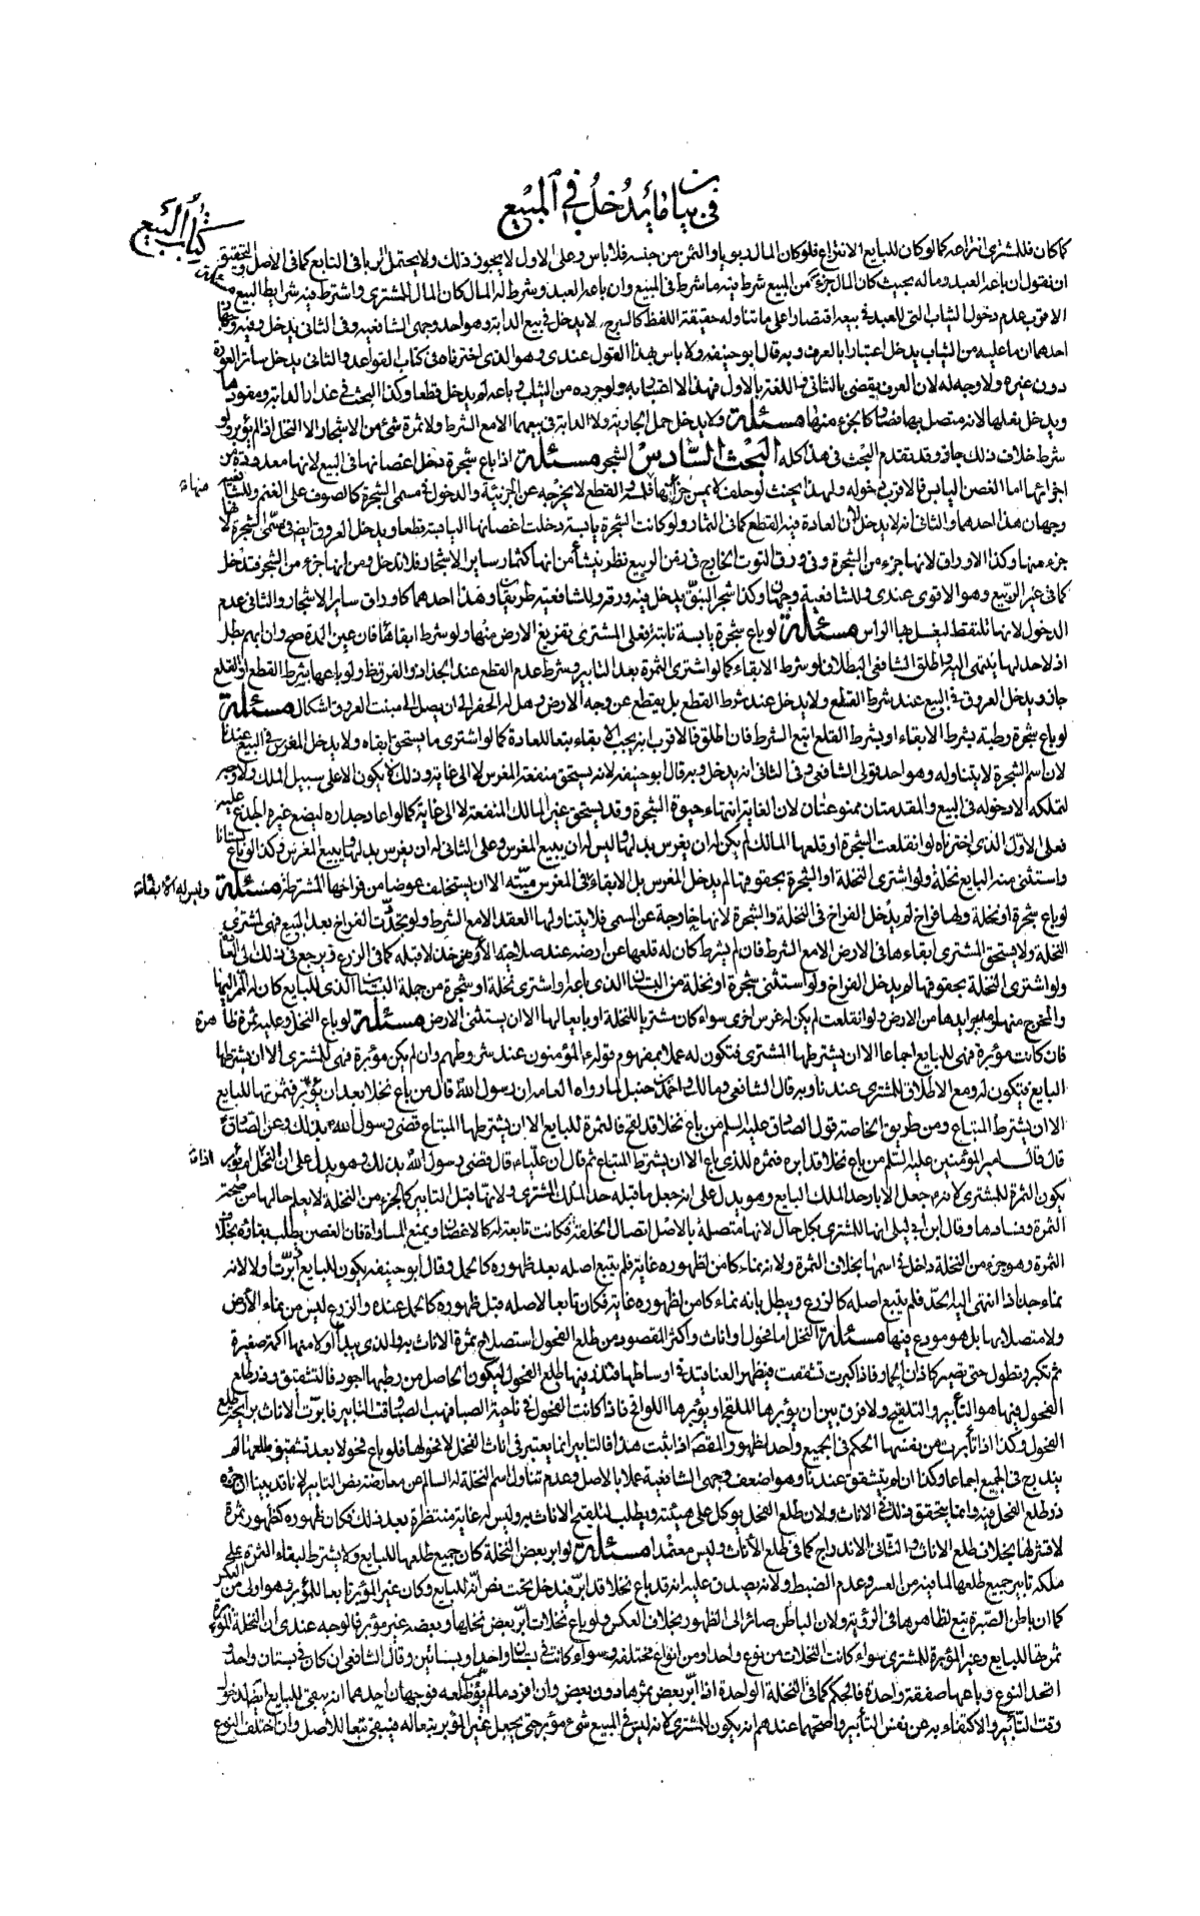 في بيان ما يدخل في المبيع
كتاب البيع
كما كان فللمشتري انتزاعه كما لو كان للبايع الانتزاع فلو كان المال ربويا والثمن من جنسه فلا باس وعلى الاول لا يجوز ذلك ولا يحتمل الربا في التابع كما في الاصل والتحقيق
ان نقول ان باعه العبد وماله بحيث كان المال جزء من المبيع شرط فيه ما شرط في المبيع وان باعه العبد وشرط له المال كان المال للمشتري واشترط فيه شرايط البيع
الاقرب عدم دخول الثياب التي للعبد في بيعه اقتصارا على ما تناوله حقيقة اللفظ كالسرج لا يدخل في بيع الدابة وهو احد وجهي الشافعية وفي الثاني يدخل وفيه وجهان
احدهما ان ما عليه من الثياب يدخل اعتبارا بالعرف وبه قال ابو حنيفه ولا باس بهذا القول عندي وهو الذي اخترناه في كتاب القواعد والثاني يدخل ساتر العورة
دون غيره ولا وجه له لان العرف يقضي بالثاني واللغة بالاول فهذا لا اعتبار به ولو جرده من الثياب وباعه لم يدخل قطعا وكذا البحث في عذار الدابة ومقودها
ويدخل نعلها لانه متصل بها فصار كالجزء منها مسئلة ولا يدخل حمل الجارية ولا الدابة في بيعهما الا مع الشرط ولا ثمرة شئ من الاشجار الا النخل اذا لم يؤبر ولو
شرط خلاف ذلك جاز وقد تقدم البحث في هذا كله البحث السادس الشجر مسئلة اذا باع شجرة دخل اغصانها في البيع لانها معدودة من
اجزائها اما الغصن اليابس فالاقرب دخوله ولهذا يحنث لو حلف لا يمس جزء منها فلمسه والقطع لا يخرجه عن الجزئية والدخول في مسمى الشجرة كالصوف على الغنم وللشافعية
وجهان هذا احدهما والثاني انه لا يدخل لان العادة فيه القطع كما في الثمار ولو كانت الشجرة يابسة دخلت اغصانها اليابسة قطعا ويدخل العروق ايضا في مسمى الشجرة لانها
جزء منها وكذا الاوراق لانها جزء من الشجرة وفي ورق التوت الخارج في زمن الربيع نظر ينشأ من انها كثمار ساير الاشجار فلا تدخل ومن انها جزء من الشجر فتدخل
كما في غير الربيع وهو الاقوى عندي وللشافعية وجهان وكذا شجر النبق يدخل فيه ورقه وللشافعية طريقان هذا احدهما كاوراق ساير الاشجار والثاني عدم
الدخول لانها تلتقط ليغسل بها الراس مسئلة لو باع شجرة يابسة نابتة فعلى المشتري تفريغ الارض منها ولو شرط ابقاها فان عين المدة صح وان ابهم بطل
اذ لا حد لها ينتهي اليه واطلق الشافعي البطلان لو شرط الابقاء كما لو اشترى الثمرة بعد التابير وشرط عدم القطع عند الجذاذ والفرق ظ ولو باعها بشرط القطع او القلع
جاز ويدخل العروق في البيع عند شرط القلع ولا يدخل عند شرط القطع بل يقطع عن وجه الارض وهل له الحفر الى ان يصل الى منبت العروق اشكال مسئلة
لو باع شجرة رطبة بشرط الابقاء او بشرط القلع اتبع الشرط فان اطلق فالاقرب انه يجب الابقاء تبعا للعادة كما لو اشترى ما يستحق ابقاه ولا يدخل المغرس في البيع عندنا
لان اسم الشجرة لا يتناوله وهو احد قولي الشافعي وفي الثاني انه يدخل وبه قال ابو حنيفه لانه يستحق منفعة المغرس لا الى غاية وذلك لا يكون الا على سبيل الملك ولا وجه
لتملكه الا دخوله في البيع والمقدمتان ممنوعتان لان الغاية انتهاء حيوة الشجرة وقد يستحق غير المالك المنفعة لا الى غاية كما لو اعار جداره ليضع غيره الجذع عليه
فعلى الاول الذي اخترناه لو انقلعت الشجرة او قلعها المالك لم يكن له ان يغرس بدلها وليس له ان يبيع المغرس وعلى الثاني له ان يغرس بدلها ويبيع المغرس وكذا لو باع بستانا
واستثنى منه البايع نخلة ولو اشترى النخلة او الشجرة بحقوقها لم يدخل المغرس بل الابقاء وليس له الابقاء في المغرس ميتة الا ان يستخلف عوضا من فراخها المشترطة مسئلة
لو باع شجرة او نخلة ولها فراخ لم يدخل الفراخ في النخلة والشجرة لانها خارجة عن المسمى فلا يتناولها العقد الا مع الشرط ولو تجددت الفراخ بعد البيع فهي لمشتري
النخلة ولا يستحق المشتري ابقاءها في الارض الا مع الشرط فان لم يشترط كان له قلعها عن ارضه عند صلاحية الاخذ لا قبله كما في الزرع ويرجع في ذلك الى العادة
ولو اشترى النخلة بحقوقها لم يدخل الفراخ ولو استثنى شجرة او نخلة من البستان الذي باعه او اشترى نخلة او شجرة من جملة البستان الذي للبايع كان له الممر اليها
والمخرج منها ومدى جرايدها من الارض ولو انقلعت لم يكن له غرس اخرى سواء كان مشتريا للنخلة او بايعا لها الا ان يستثني الارض مسئلة لو باع النخل وعليه ثمرة ظاهرة
فان كانت مؤبرة فهي للبايع اجماعا الا ان يشترطها المشتري فتكون له عملا بمفهوم قوله ع المؤمنون عند شروطهم وان لم يكن مؤبرة فهي للمشتري الا ان يشترطها
البايع فيكون له ومع الاطلاق للمشتري عندنا وبه قال الشافعي ومالك واحمد بن حنبل لما رواه العامة ان رسول الله قال من باع نخلا بعد ان يؤبر فثمرتها للبايع
الا ان يشترط المبتاع ومن طريق الخاصة قول الصادق عليه السلم من باع نخلا قد لقح فالثمرة للبايع الا ان يشترطها المبتاع قضى رسول الله بذلك وعن الصادق
قال قال امير المؤمنين عليه السلم من باع نخلا قد ابره فثمره للذي باع الا ان يشترط المبتاع ثم قال ان عليا ع قال قضى رسول الله بذلك وهو يدل على ان النخل اذا لم يؤبر
يكون الثمرة للمشتري لانه ع جعل الابار حد الملك البايع وهو يدل على انه جعل ما قبله حدا لملك المشتري ولانها قبل التابير كالجزء من النخلة لا يعلم حالها من صحة
الثمرة وفسادها وقال ابن ابي ليلى انها للمشتري بكل حال لانها متصلة بالاصل اتصال الخلقة فكانت تابعة له كالاغصان ويمنع المساواة فان الغصن يطلب بقاؤه بخلاف
الثمرة وهو جزء من النخلة داخل في اسمها بخلاف الثمرة ولانه نماء كامن لظهوره غاية فلم يتبع اصله بعد ظهوره كالحمل وقال ابو حنيفه يكون للبايع ابرت او لا لانه
نماء جد اذا انتهى اليه الحد فلم يتبع اصله كالزرع ويبطل بانه نماء كامن لظهوره غاية فكان تابعا لاصله قبل ظهوره كالحمل عنده والزرع ليس من نماء الارض
ولا متصلا بها بل هو مودع فيها مسئلة النخل اما فحول او اناث واكثر المقصود من طلع الفحول استصلاح ثمرة الاناث به والذي يبدأ اولا منها اكمة صغيرة
ثم تكبر وتطول حتى تصير كاذان الحمار فاذا كبرت تشققت فيظهر العناقيد في اوساطها فتذر فيها طلع الفحول ليكون الحاصل من رطبها اجود فالتشقيق وذر طلع
الفحول فيها هو التأبير والتلقيح ولا فرق بين ان يؤبرها الملقح او يؤبرها اللواقح فاذا كانت الفحول في ناحية الصبا فهب الصبا وقت التابير فابرت الاناث برايحة طلع
الفحول وكذا اذا تأبرت من نفسها الحكم في الجميع واحد لظهور المقصد اذا ثبت هذا فالتابير انما يعتبر في اناث النخل لا فحولها فلو باع فحولا بعد تشقيق طلعها لم
يندرج في البيع اجماعا وكذا ان لم يتشقق عندنا وهو اضعف وجهي الشافعية عملا بالاصل وعدم تناول اسم النخلة له السالم عن معارضة نص التابير لانا قد بينا انه
ذر طلع الفحل فيه وانما يتحقق ذلك في الاناث ولان طلع الفحل يوكل على هيئته ويطلب لتلقيح الاناث به وليس له غاية منتظرة بعد ذلك فكان ظهوره كظهور ثمرة
لا قشر لها بخلاف طلع الاناث والثاني الاندراج كما في طلع الأناث وليس معتمدا مسئلة لو ابر بعض النخلة كان جميع طلعها للبايع ولا يشترط لبقاء الثمرة على
ملكه تابير جميع طلعها لما فيه من العسر وعدم الضبط ولانه يصدق عليه انه قد باع نخلا قد ابر فيدخل تحت نص انه للبايع وكان غير المؤبر تابعا للمؤبر وهو اولى من العكس
كما ان باطن الصبرة تبع لظاهرها في الرؤية ولان الباطن صائر الى الظهور بخلاف العكس ولو باع نخلات ابر بعض نخلها وبعضه غير مؤبر فالوجه عندي ان النخلة المؤبرة
ثمرتها للبايع وغير المؤبرة للمشتري سواء كانت النخلات من نوع واحد او من انواع مختلفة وسواء كانت في بستان واحد او بساتين وقال الشافعي ان كان في بستان واحد و
اتحد النوع وباعها صفقة واحدة فالحكم كما في النخلة الواحدة اذا ابر بعض ثمرها دون بعض وان افرد ما لم يؤبر طلعه فوجهان احدهما انه يبقى للبايع ايضا لدخول
وقت التأبير والاكتفاء به عن نفس التأبير واصحهما عندهم انه يكون للمشتري لانه ليس في المبيع شئ مؤبر حتى يجعل غير المؤبر تبعا له فيبقى تبعا للأصل وان اختلف النوع